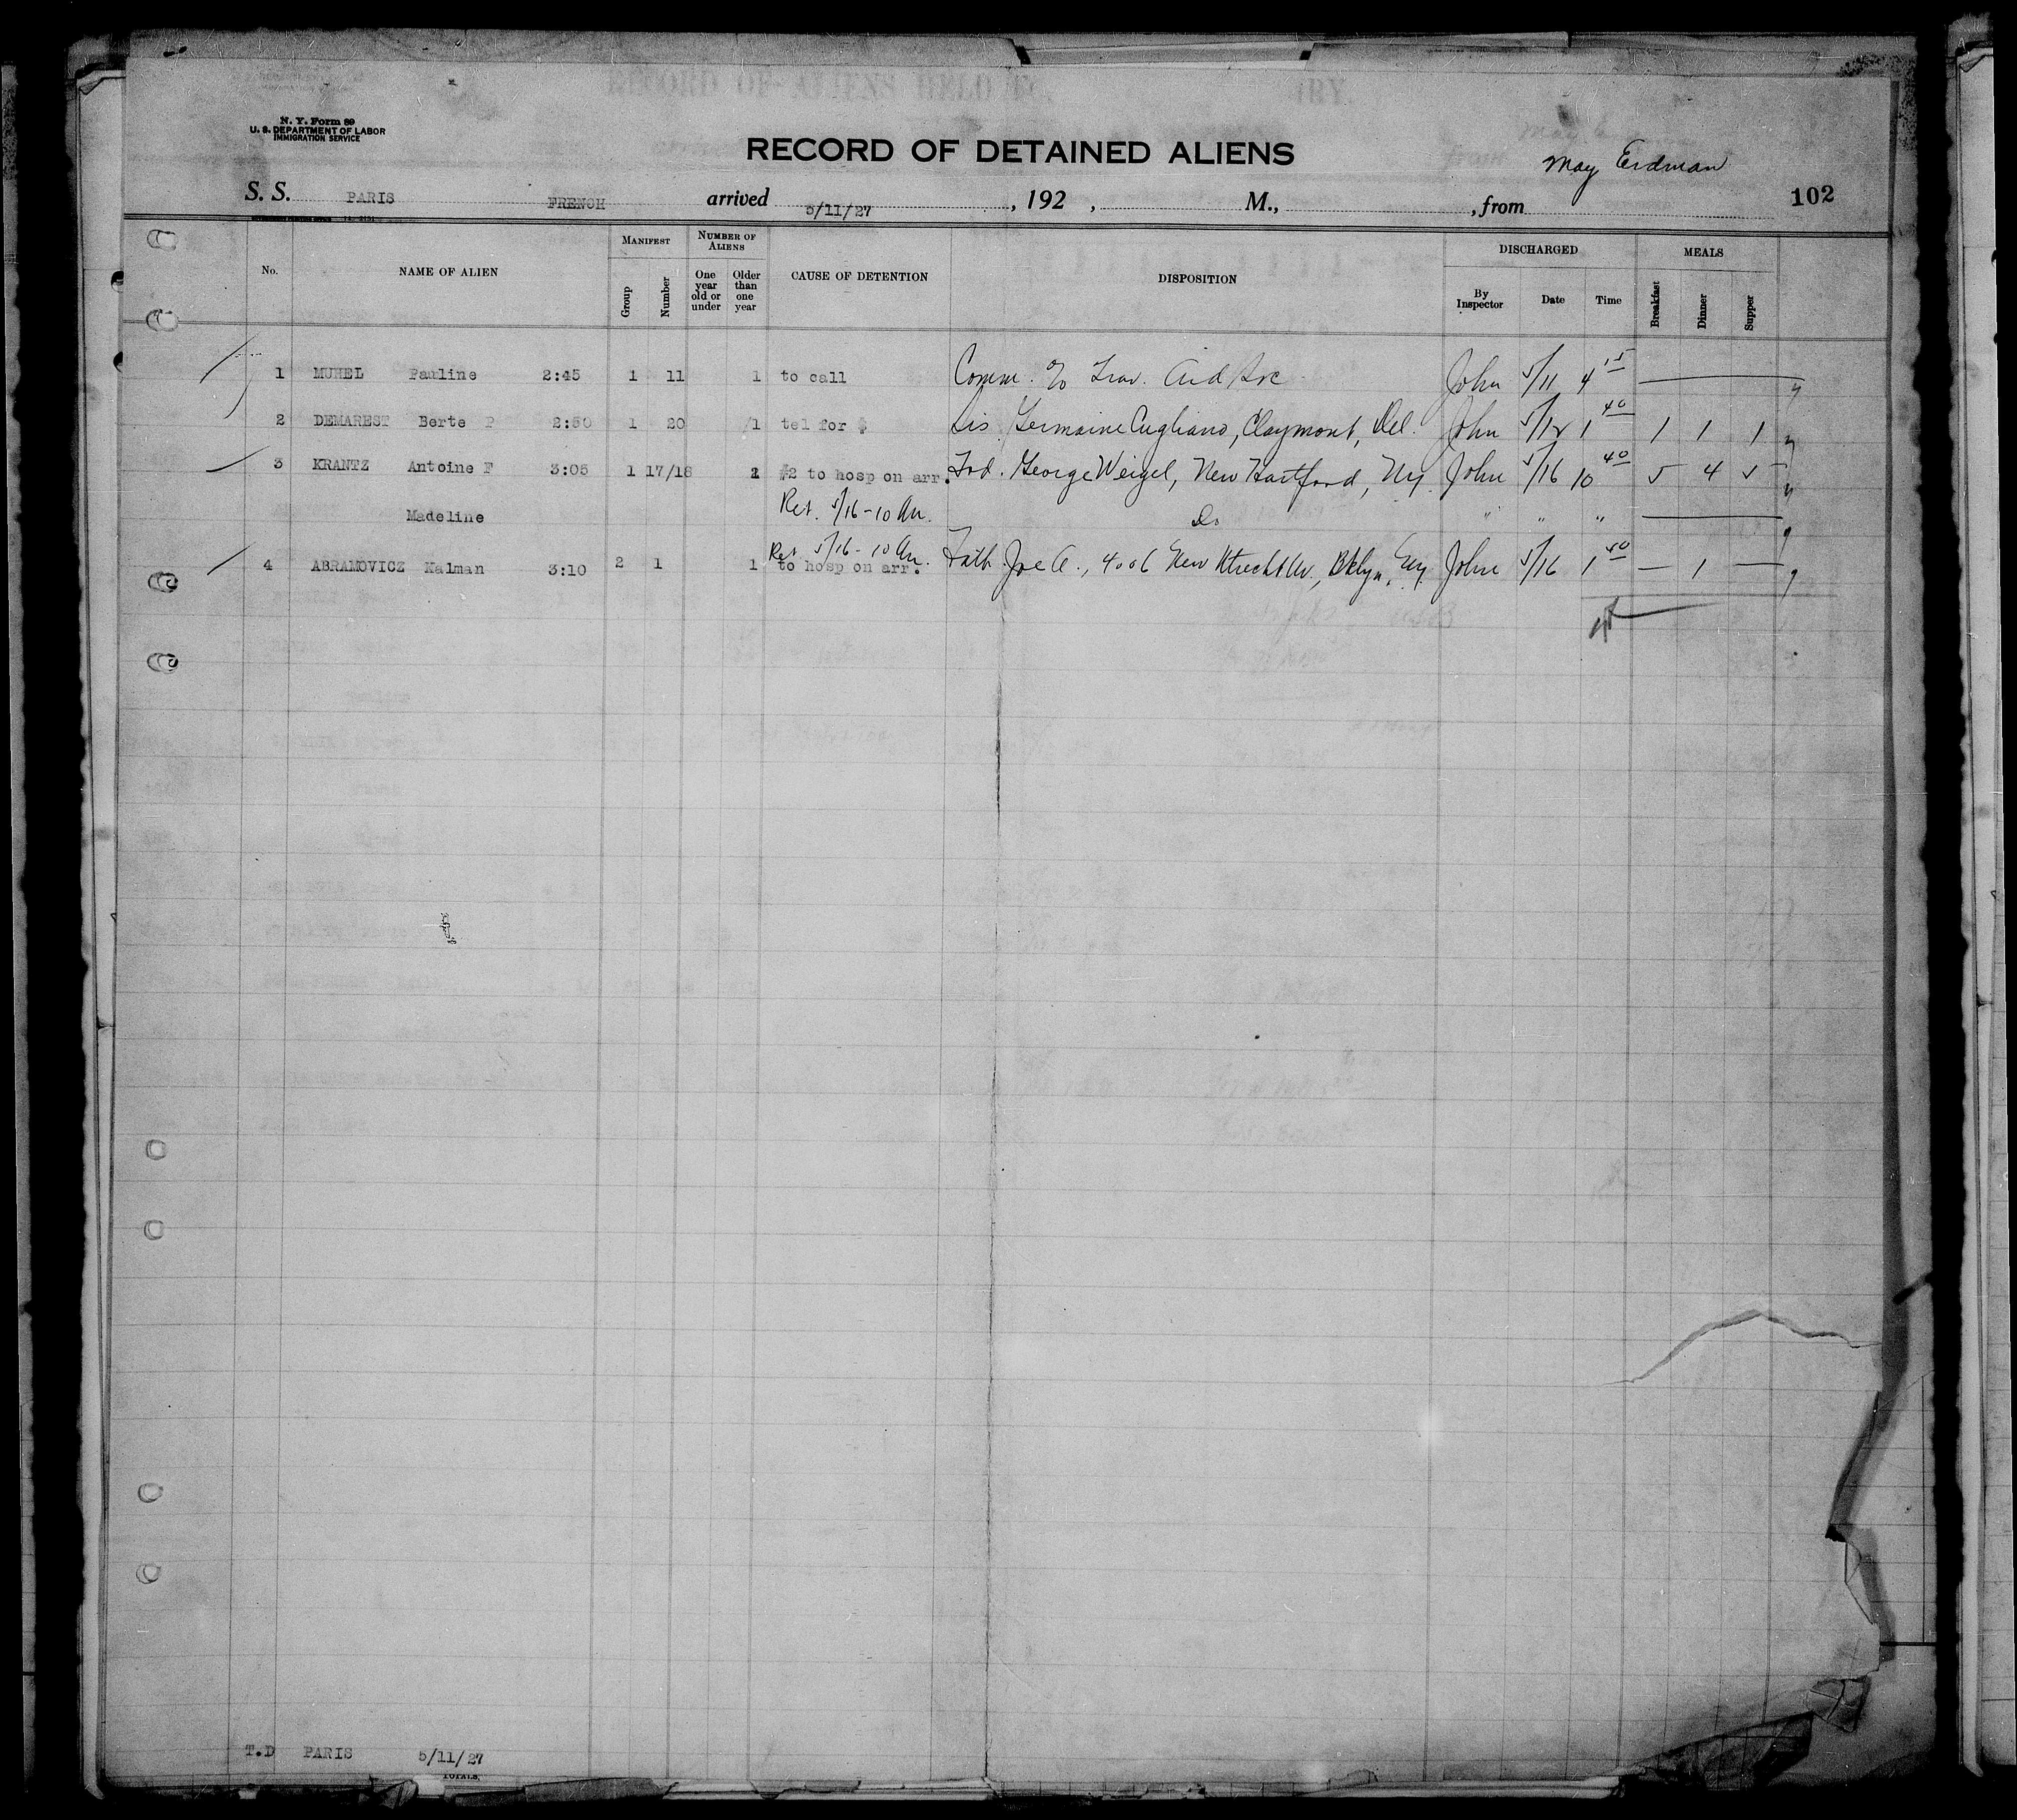 N. Y. Form 89
U. S. DEPARTMENT OF LABOR
IMMIGRATION SERVICE
RECORD OF DETAINED ALIENS
May Erdman
S. S. PARIS FRENCH arrived 5/11/27, 192 , M., , from 102
No. NAME OF ALIEN MANIFEST Group Number NUMBER OF ALIENS One year old or under Older than one year CAUSE OF DETENTION DISPOSITION DISCHARGED By Inspector Date Time MEALS Breakfast Dinner Supper
1 MUHEL Pauline 2:45 1 11 1 to call Comm. % Trav. Aid Soc John 5/11 4 15
2 DEMAREST Berte P 2:50 1 20 1 tel for $ Sis. Germaine Cugliano, Claymont, Del. John 5/12 1 40 1 1 1
3 KRANTZ Antoine F 3:05 1 17/18 2 #2 to hosp on arr. George Weigel, New Hartford, NY John 5/16 10 40 5 4 5
Madeline Ret. 5/16-10 Am. Do " " "
Ret 5/16-10 Am.
4 ABRAMOVICZ Kalman 3:10 2 1 1 to hosp on arr. Fath. Joe A., 4006 New Utrecht Av., Bklyn, NY John 5/16 1 50 — 1 —
T.D PARIS 5/11/27
TOTALS,